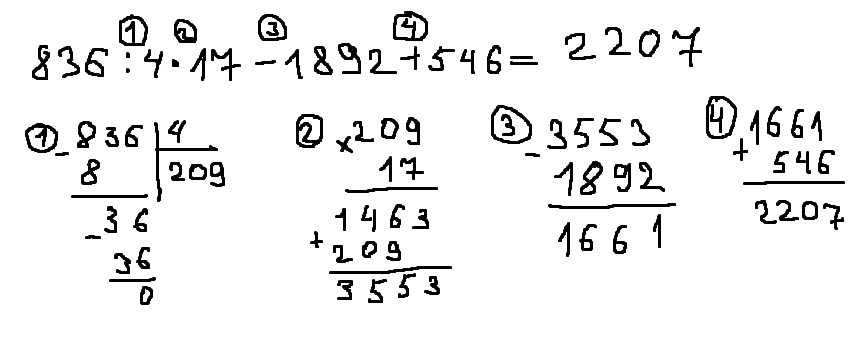 ① ② ③ ④
836:4·17-1892+546= 2207
① -836 4
8 209
-36
36
0
② ×209
17
1463
+209
3553
③ -3553
1892
1661
④ 1661
+546
2207